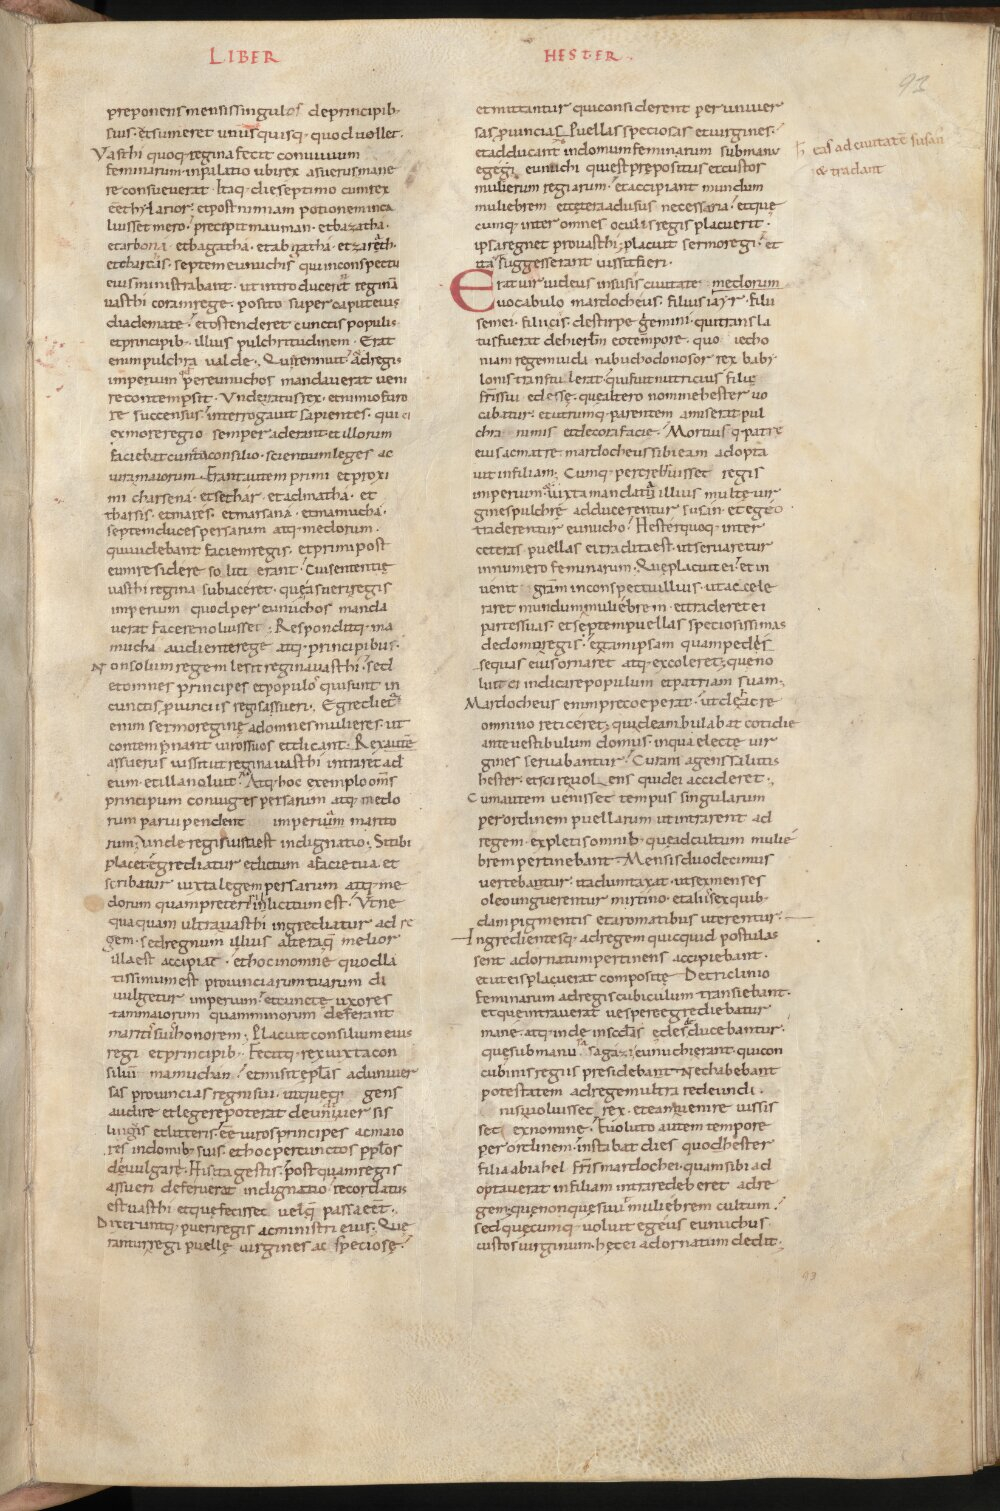 LIBER
HESTER.
93
preponens mensis singulos de principib·
suis· et sumeret unus quisq· quod vollet·
Vasthi quoq· regina fecit convivium
feminarum in palatio ubi rex asuerus mane
re consueverat· Itaq· die septimo cum rex
eēt hylarior· et post nimiam potionem inca
luisset mero· precipit mauman· et bazatha·
et arbona· et bagatha· et abgatha· et zarath·
et charcas· septem eunuchis qui in conspectu
eius ministrabant· ut introducerent reginā
vasthi coram rege· posito super caput eius
diademate· et ostenderet cunctis populis
et principib· illius pulchritudinem· Erat
enim pulchra valde· Que rennuit· et ad regis
imperium quod per eunuchos mandaverat veni
re contempsit· Unde iratus rex· et nimio furo
re succensus· interrogavit sapientes· qui ei
ex more regio semper aderant· et illorum
faciebat cuncta consilio· scientium leges ac
iura maiorum· Erant autem primi et proxi
mi charsena· et sethar· et admatha· et
tharsis· et mares· et marsana· et mamucha·
septem duces persarum atq· medorum·
qui videbant faciem regis· et primi post
eum residere soliti erant· Cui sententie
vasthi regina subiaceret· que asveri regis
imperium quod per eunuchos manda
verat facere noluisset· Responditq· ma
mucha audiente rege atq· principibus·
Non solum regem lesit regina vasthi· sed
et omnes principes et populos qui sunt in
cunctis provinciis regis assueri· Egredietur
enim sermo regine ad omnes mulieres· ut
contempnant viros suos et dicant· Rex autē
assuerus iussit ut regina vasthi intraret ad
eum· et illa noluit· Atq· hoc exemplo omīs
principum coniuges persarum atq· medo
rum parvipendent imperium marito
rum· unde regis iusta est indignatio· Si tibi
placet egrediatur edictum a facie tua· et
scribatur iuxta legem persarum atq· me
dorum quam preteriri illicitum est· Ut ne
quaquam ultra vasthi ingrediatur ad re
gem· sed regnum illius altera que melior
illa est accipiat· et hoc in omne quod la
tissimum est provinciarum tuarum di
vulgetur imperium· et cuncte uxores
tam maiorum quam minorum deferant
maritis suis honorem· Placuit consilium eius
regi et principib·· Fecitq· rex iuxta con
silium mamuchan· et misit epl̄as ad univer
sas provincias regni sui· ut queq· gens
audire et legere poterat diversis
linguis et litteris· eē viros principes ac maio
res in domib· suis· et hoc per cunctos pp̄los
devulgare· His ita gestis· postquam regis
assueri deferverat indignatio· recordatus
est vasthi et que fecisset vel que passa eēt·
Dixeruntq· pueri regis ac ministri eius· Que
rantur regi puelle virgines ac speciose·
et mittantur qui considerent per univer
sas provincias puellas speciosas et virgines·
et adducant in domum feminarum sub manu
egegi eunuchi qui est prepositus et custos
mulierum regiarum· et accipiant mundum
muliebrem et cetera ad usus necessaria· et que
cumq· inter omnes oculis regis placuerit·
ipsa regnet pro vasthi· placuit sermo regi· et
ita ut suggesserant iussit fieri·
Erat vir iudeus in susis civitate medorum
vocabulo mardocheus· filius iayr· filii
semei· filii cis· de stirpe gemini· qui transla
tus fuerat de hierlm̄ eo tempore· quo iecho
niam regem iuda nabuchodonosor rex baby
lonis transtulerat· qui fuit nutricius filię
frīs sui edesse· que altero nomine hester vo
cabatur· et utrumq· parentem amiserat· pul
chra nimis et decora facie· Mortuisq· patre
eius ac matre· mardocheus sibi eam adopta
vit in filiam· Cumq· percrebuisset regis
imperium· et iuxta mandatū illius multe vir
gines pulchre adducerentur susan· et egeo
traderentur eunucho· Hester quoq· inter
ceteras puellas ei tradita est· ut servaretur
in numero feminarum· Que placuit ei· et in
venit grām in conspectu illius· ut accele
raret mundum muliebrem· et traderet ei
partes suas· et septem puellas speciosissimas
de domo regis· et tam ipsam quam pedis
sequas eius ornaret atq· excoleret· que no
luit ei indicare populum et patriam suam·
Mardocheus enim preceperat· ut de hac re
omnino reticeret· qui deambulabat cotidie
ante vestibulum domus· in qua electe vir
gines servabantur· Curam agens salutis
hester· et scire volens quid ei accideret·
Cum autem venisset tempus singularum
per ordinem puellarum ut intrarent ad
regem· expletis omnib· que ad cultum mulie
brem pertinebant· Mensis duodecimus
vertebatur· ita dumtaxat· ut sex menses
oleo unguerentur mirtino· et aliis sex quib·
dam pigmentis et aromatibus uterentur·
Ingredientesq· ad regem quicquid postulas
sent ad ornatum pertinens accipiebant·
et ut eis placuerat composite De triclinio
feminarum ad regis cubiculum transiebant·
et que intraverat vespere egrediebatur
mane· atq· inde in scdas edes ducebantur·
que sub manu sagazi eunuchi erant· qui con
cubinis regiis presidebant· Nec habebant
potestatem ad regem ultra redeundi·
nisi voluisset rex· et eam venire iussis
set ex nomine· Evoluto autem tempore
per ordinem· instabat dies quo hester
filia abiahel frīs mardochei· quam sibi ad
optaverat in filiam intrare deberet ad re
gem· que non quesivit muliebrem cultum·
sed quecumq· voluit egeus eunuchus
custos virginum· hec ei ad ornatum dedit·
h̄ eas ad civitatē susan
& tradant
93